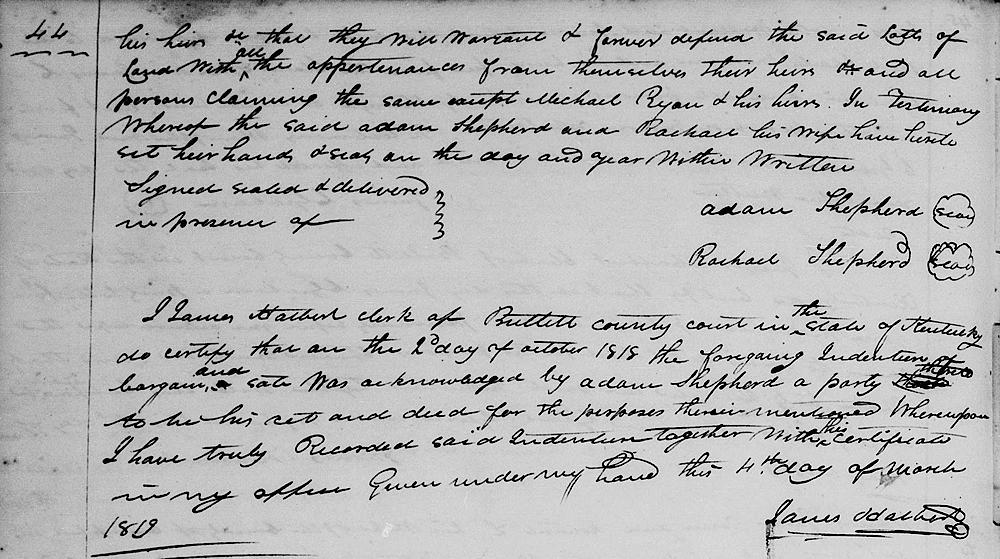 44
his heirs &c that they will warrant & forever defend the said Lotts of
Land with all the appertenances from themselves their heirs &c and all
persons claiming the same except Michael Ryan & his heirs. In Testimony
Whereof the said adam Shepherd and Rachael his wife have hereto
set heir hands & seals on the day and year within written
Signed sealed & delivered
in presence of
adam Shepherd Seal
Rachael Shepherd Seal
I James Halbert clerk of Bullitt county court in the state of Kentucky
do certify that on the 2d day of october 1818 the foregoing Indenture of
bargain and sale was acknowledged by adam Shepherd a party thereto
to be his act and deed for the purposes therein mentioned Whereupon
I have truly Recorded said Indenture together with this certificate
in my office Given under my hand this 4th day of March
1819
James Halbert